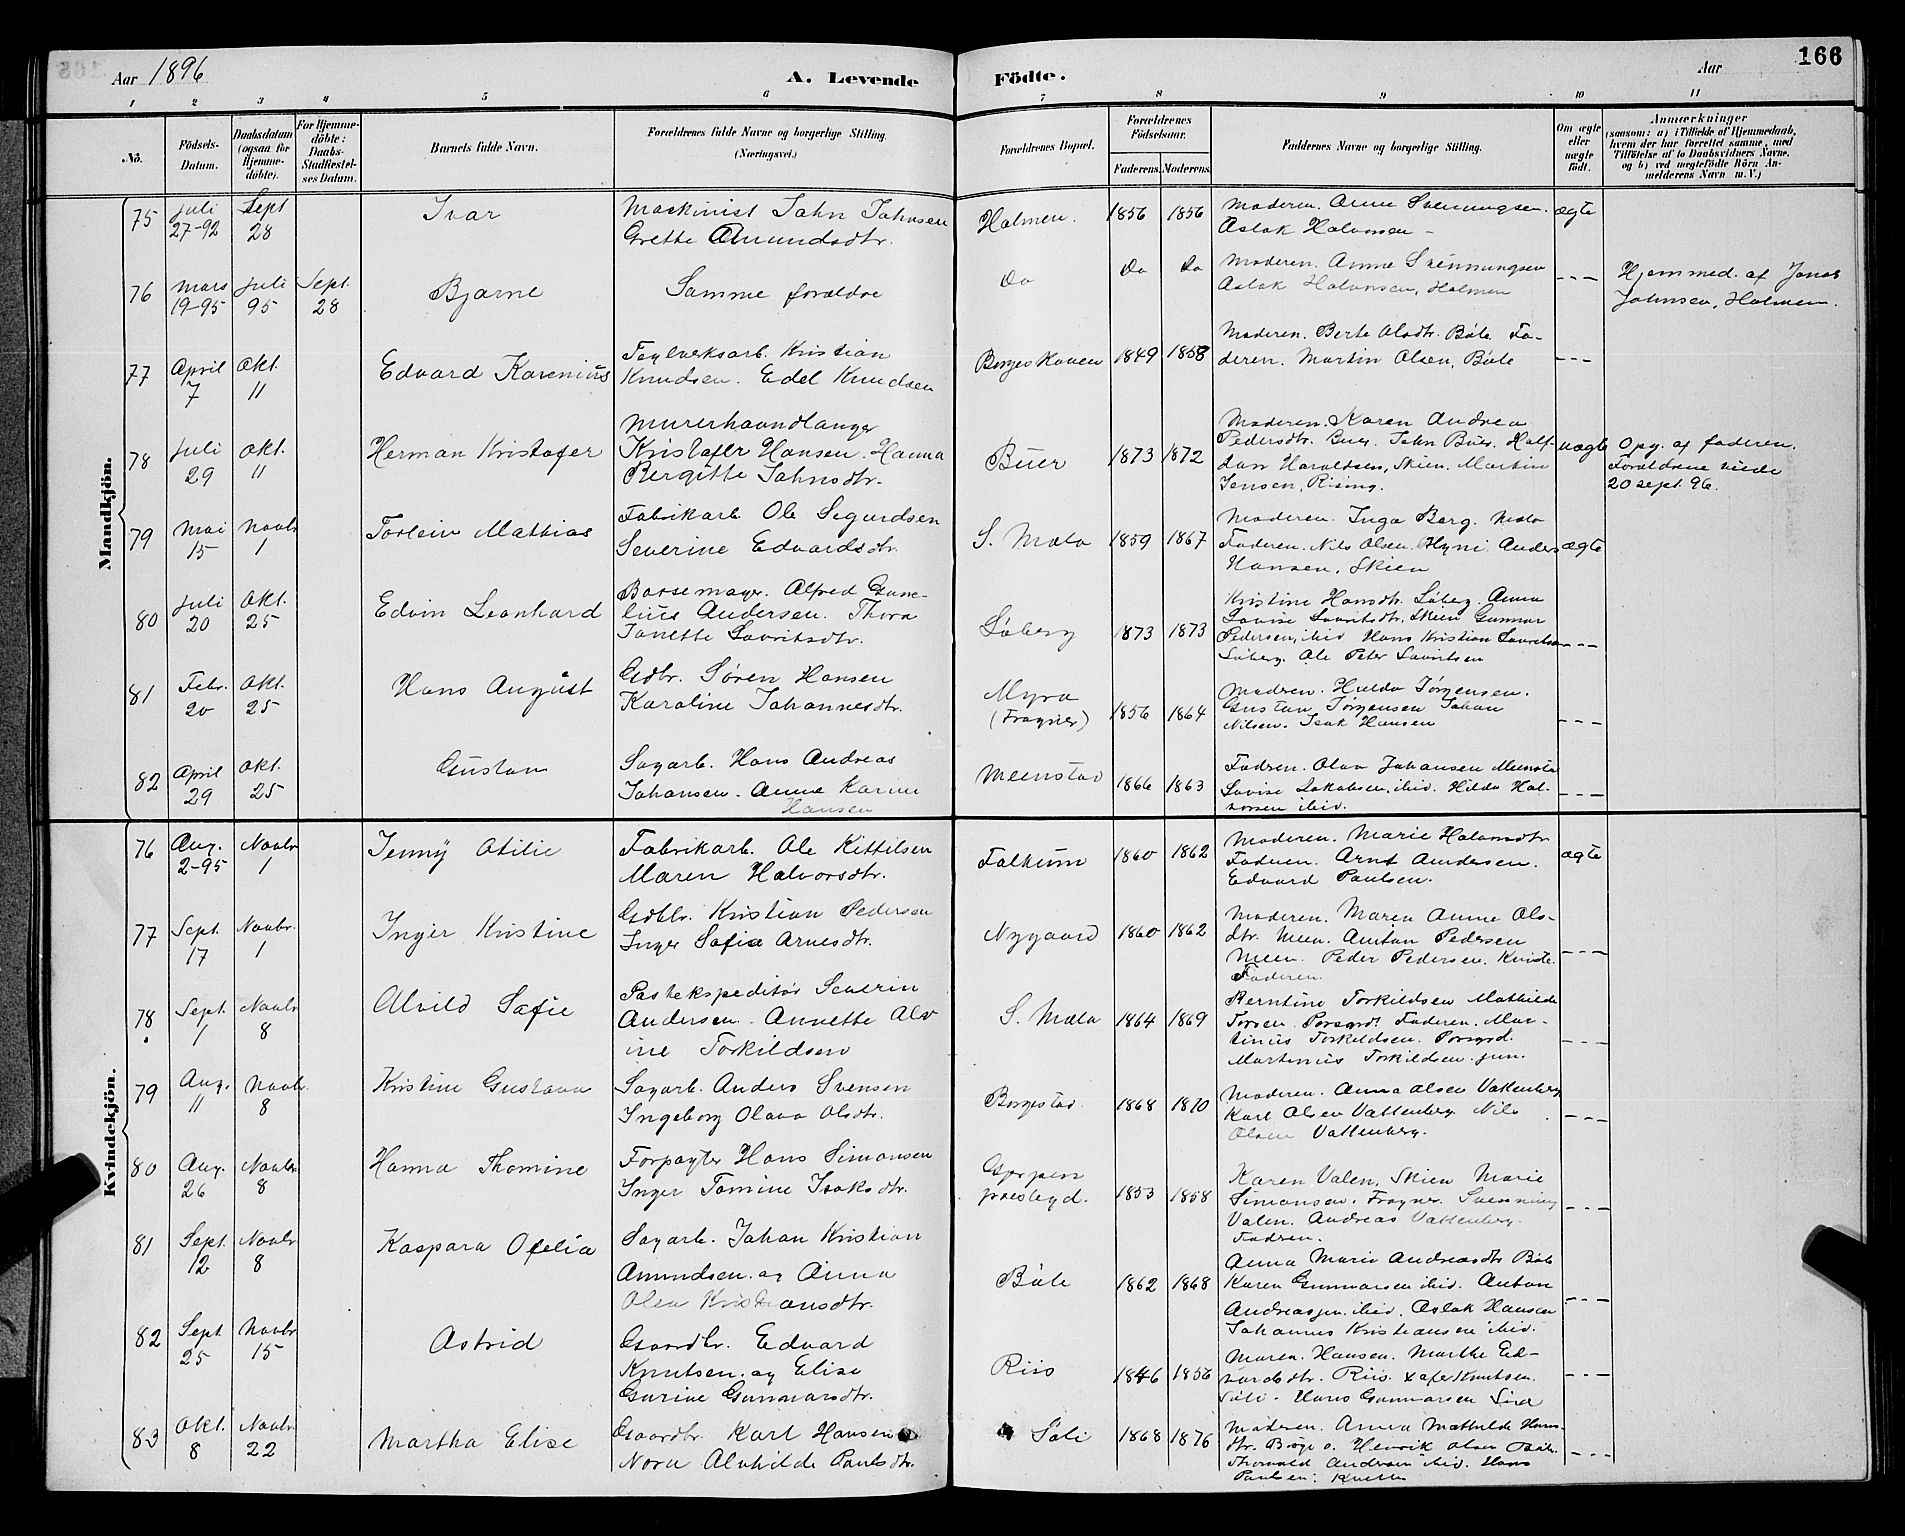 Aar 1896
A. Levende Födte.
Aar
166
1 2 3 4 5 6 7 8 9 10 11
No.
Födsels-Datum.
Daabsdatum (ogsaa for Hjemme-döbte).
For Hjemme-döbte: Daabs-Stadfæstel-ses Datum.
Barnets fulde Navn.
Forældrenes fulde Navne og borgerlige Stilling. (Næringsvei.)
Forældrenes Bopæl.
Forældrenes Födselsaar.
Faderens. Moderens.
Faddernes Navne og borgerlige Stilling.
Om ægte eller uægte födt.
Anmærkninger
(saasom: a) i Tilfælde af Hjemmedaab, hvem der har forrettet samme, med Tilföielse af to Daabsvidners Navne, og b) ved uægtefödte Börn An-melderens Navn m. V.)
Mandkjön.
75 Juli 27-92 Sept 28 Ivar
Maskinist John Johnsen
Grethe Amundsdtr.
Holmen. 1856 1856
Moderen. Anne Svenningsen.
Aslak Halvorsen –
ægte
76 Mars 19-95 Juli 95 Sept. 28 Bjarne
Samme forældre
Do Do Do
Moderen. Anne Svenningsen
Aslak Halvorsen, Holmen
- - -
Hjemmed. af Jonas
Johnsen, Holmen.
77 April 7 Okt. 11 Edvard Karenius
Teglverksarb. Kristian
Knudsen. Edel Knudsen
Borgeskoven 1849 1858
Moderen. Berte Olsdtr. Böle Fa-
deren. Martin Olsen, Böle
- - -
78 Juli 29 Okt. 11 Herman Kristofer
Murerhaandlanger
Kristofer Hansen. Hanna
Bergitte Johnsdtr.
Buer 1873 1872
Moderen. Karen Andrea
Pedersdtr. Buer. John Buer. Half-
dan Haraldsen, Skien. Martin
Jensen, Rising.
uægte
Opg. af faderen.
Forældrene viede
20 sept. 96.
79 Mai 15 Novbr 1 Torleiv Mathias
Fabrikarb. Ole Sigurdsen
Severine Edvardsdtr.
S. Mæla 1859 1867
Moderen. Inga Berg. Mæla
Faderen. Nils Olsen. Anders
Hansen, Skien
ægte
80 Juli 20 Okt. 25 Edvin Leonhard
Børsemager. Alfred Gune-
lius Andersen. Thora
Janette Lavritsdtr.
Löberg 1873 1873
Kristine Hansdtr. Löberg. Anna
Lovise Lavritsdtr, Skien Gunnar
Pedersen, ibid Hans Kristian Lavritsen
Löberg. Ole Peter Lavritsen
- - -
81 Febr. 20 Okt. 25 Hans August
Gdbr. Søren Hansen
Karoline Johannesdtr.
Myra
(Frogner) 1856 1864
Modren. Hulda Jørgensen.
Gustav Jørgensen Johan
Nilsen. Isak Hansen
- - -
82 April 29 Okt. 25 Gustav
Sagarb. Hans Andreas
Johansen. Anne Karine
Hansen
Meenstad 1866 1863
Fadren. Olava Johansen Meensta
Lovise Jakobsen, ibid. Hilda Hal-
vorsen ibid.
- - -
Kvindekjön.
76 Aug. 2-95 Novbr 1 Jenny Otilie
Fabrikarb. Ole Kittilsen
Maren Halvorsdtr.
Falkum 1860 1862
Moderen. Marie Halvorsdtr
Faderen. Arnt Andersen.
Edvard Paulsen.
ægte
77 Sept. 17 Novbr. 1 Inger Kristine
Gdbr. Kristian Pedersen
Inger Sofie Arnesdtr.
Nygaard 1860 1862
Moderen. Maren Anne Ols-
dtr. Meen. Anton Pedersen
Meen. Peder Pedersen.
Faderen
- - -
78. Sept. 1 Novbr 8 Alvild Sofie
Postekspeditör Severin
Andersen. Annette Alv
ine Torkildsen
S. Mæla 1864 1869
Berntine Torkildsen Mathilde
Torsen. Porsgrd. Faderen. Mar-
tinius Torkildsen. Porsgrd.
Martinius Torkildsen. jun.
- - -
79 Aug. 11 Novbr. 8 Kristine Gustava
Sagarb. Anders Svensen
Ingeborg Olava Olsdtr.
Borgestad. 1868 1870
Moderen. Anna Olsen Vattenberg
Karl Olsen Vattenberg. Nils
Olsen Vattenberg.
- - -
80 Aug. 26 Novbr 8 Hanna Thomine
Forpagter Hans Simonsen
Inger Tomine Isaksdtr.
Gjerpen
præstegd. 1853 1858
Karen Valen, Skien Marie
Simonsen, Frogner. Svenning
Valen. Andreas Vattenberg.
Fadren.
- - -
81 Sept. 12 Novbr 8 Kaspara Ofelia
Sagarb. Johan Kristian
Amundsen. og Anna
Olea Kristiansdtr.
Böle 1862 1868
Anna Marie Andreasdtr Böle
Karen Gunnarsen ibid. Anton
Andreassen ibid. Aslak Hansen
Johannes Kristiansen ibid.
- - -
82 Sept 25 Novbr 15 Astrid
Gaardbr. Edvard
Knutsen. og Elise
Gurine Gunnarsdtr.
Riis 1846 1856
Maren. Hansen. Marthe Ed-
vardsdtr. Riis. Knutsen.
Söli. Hans Gunnarsen
- - -
83 Okt. 8 Novbr. 22 Martha Elise
Gaardbr. Karl Hansen
Nora Alvhilde Paulsdtr.
Söli 1868 1876
Moderen. Anna Mathilde Hans
dtr. Henrik Olsen Böle.
Thorvald Andersen ibid. Hans
Paulsen.
- - -